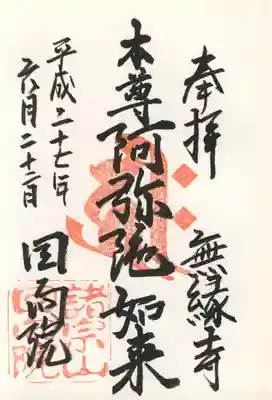 奉拝
無縁寺
本尊阿弥陀如来
平成二十七年
六月二十二日
回向院
諸宗山